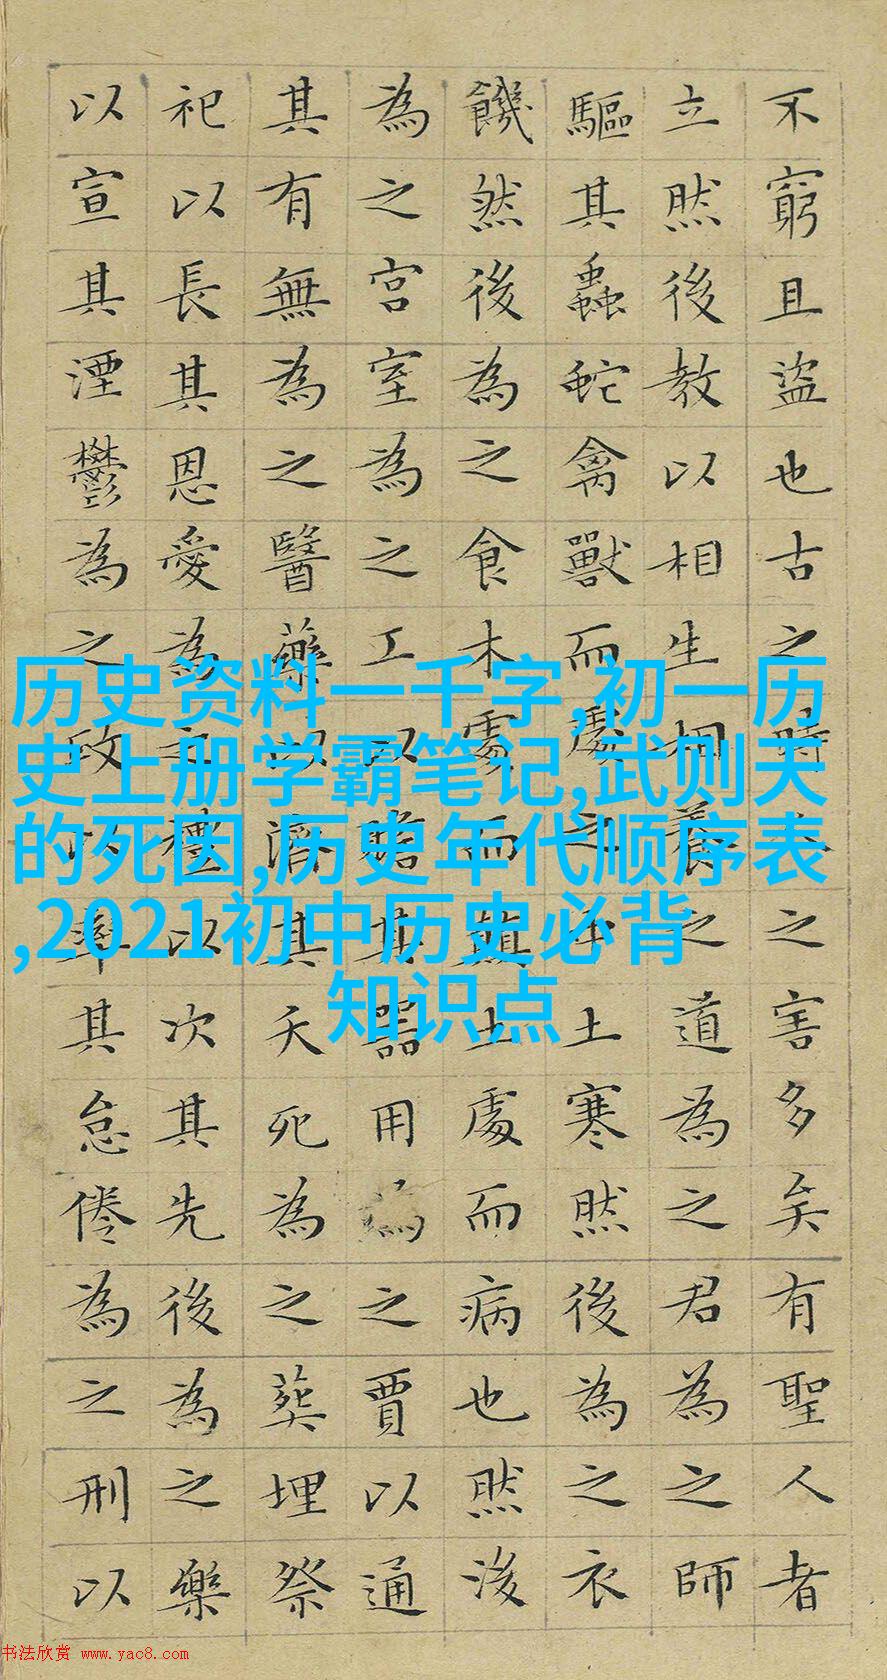 不窮且盜也古之時人之害多矣有聖人者
立然後教以相生相養之道為之君為之師
驅其蟲蛇禽獸而處之中土寒然後為之衣
饑然後為之食木處而顛土處而病也然後
為之宮室為之工以贍其器用為之賈以通
其有無為之醫藥以濟其夭死為之葬埋祭
祀以長其恩愛為之禮以次其先後為之樂
以宣其湮鬱為之政以率其怠倦為之刑以
历史资料一千字,初一历
史上册学霸笔记,武则天
的死因,历史年代顺序表
,2021初中历史必背
知识点
书法欣赏 www.yac8.com